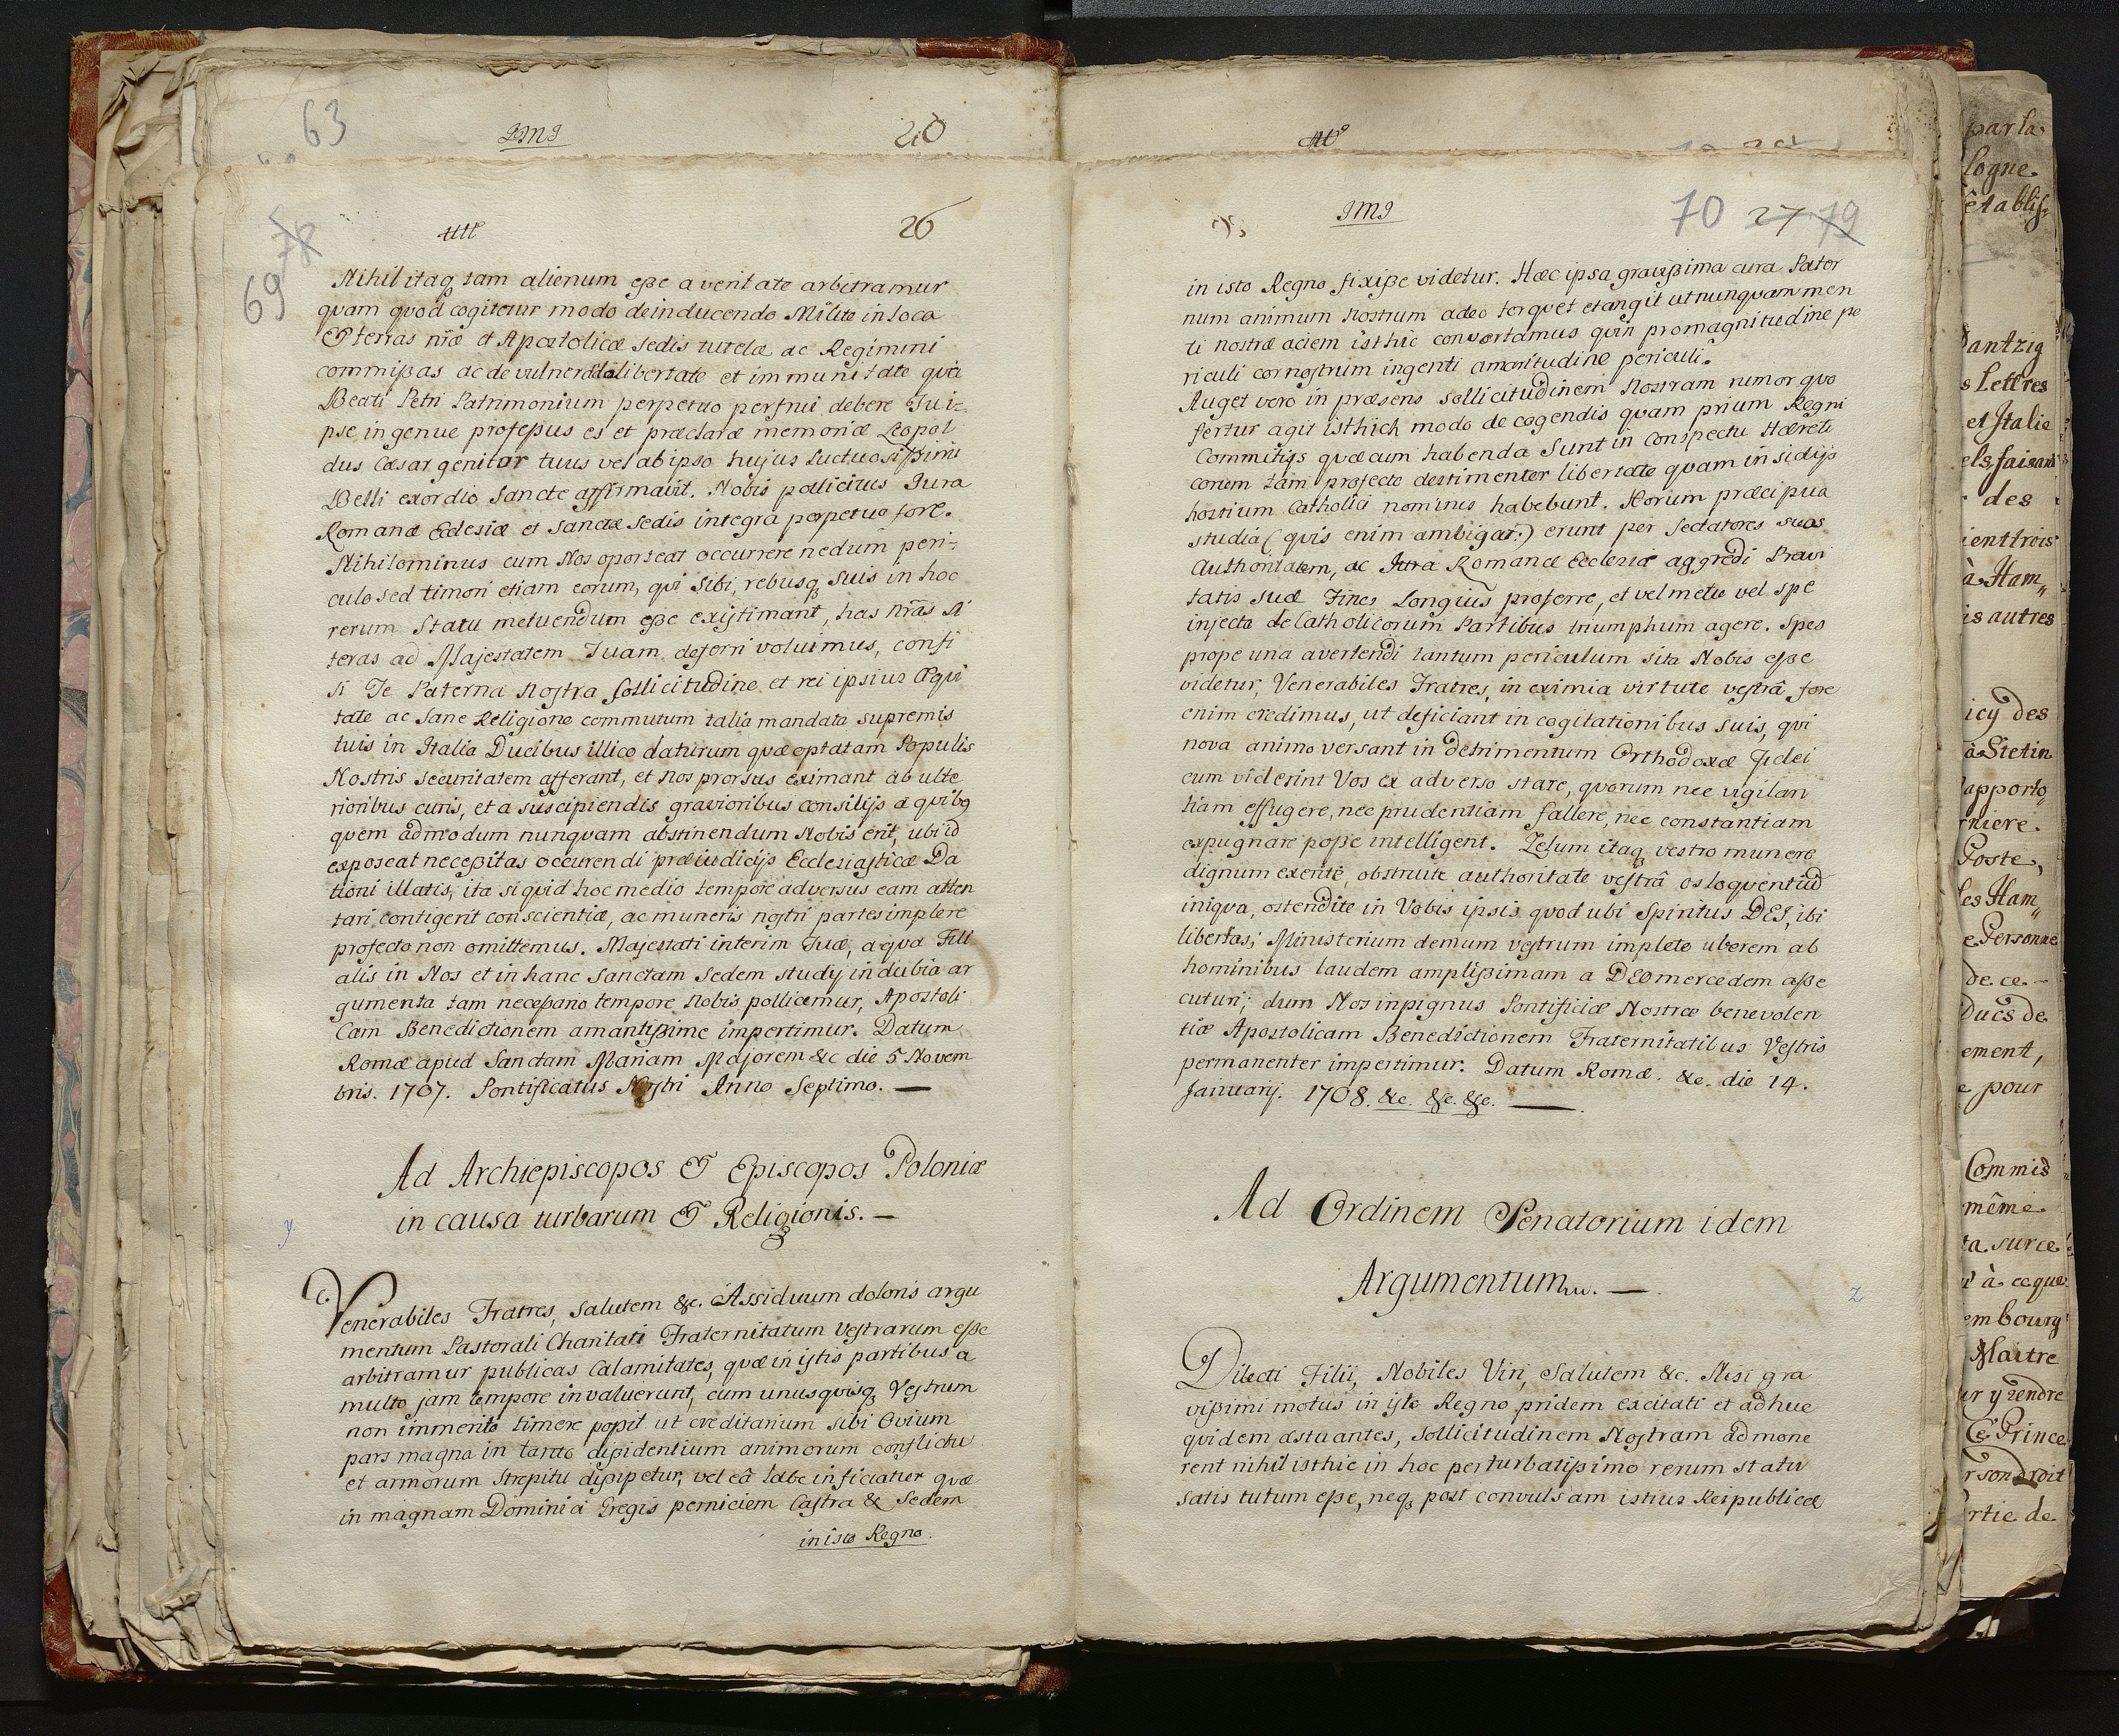 63
JMJ
20
78
69
26
Nihil itaq tam alienum eße a veritate arbitramur
qvam qvod cogitetur modo de inducendo Milite in loca
& terras nrae et Apostolicae Sedis tutelae ac Regimini
commißas ac de vulneranda libertate et immunitate qva
Beati Petri Patrimonium perpetuo perfrui debere Tui=
pse ingenue profeßus es et praeclarae memoriae Leopol
dus Caesar genitor tuus vel ab ipso hujus Luctuosißimi
Belli exordio Sancte affirmavit. Nobis pollicitus Jura
Romanae Eclesiae et Sanctae Sedis integra perpetuo fore.
Nihilominus cum Nos oporteat occurrere nedum peri=
culo sed timori etiam eorum, qvi Sibi, rebusq Suis in hoc
rerum Statu metuendum eße existimant, has nras li
teras ad Majestatem Tuam deferri voluimus, confi
si Te Paterna Nostra Sollicitudine et rei ipsius Aeqvi
tate ac Sane Religione commutum talia mandata supremis
tuis in Italia Ducibus illico daturum quae optatam Populis
Nostris securitatem afferant, et nos prorsus eximant ab ulte
rioribus curis, et a suscipiendis gravioribus consilijs a qvibq
qvem admodum nunqvam abstinendum Nobis erit, ubi id
exposcat neceßitas occurendi praeiudicijs Ecclesiasticae Da
tioni illatis, ita si quid hoc medio tempore adversus eam atten
tari contigerit conscientiae, ac muneris nostri partes implere
profecto non omittemus. Majestati interim Tuae, a qva Fili
alis in Nos et in hanc Sanctam Sedem studij indubia ar
gumenta tam neceßario tempore Nobis pollicemur, Apostoli
Cam Benedictionem amantißime impertimur. Datum
Romae apud Sanctam Mariam Majorem &c die 5 Novem
bris. 1707. Pontificatus Nostri Anno Septimo. —
Ad Archiepiscopos & Episcopos Poloniae
in causa turbarum & Religionis. —
y
Venerabiles Fratres, Salutem &c. Assiduum doloris argu
mentum Pastorali Charitati Fraternitatum Vestrarum eße
arbitramur publicas Calamitates, quae in istis partibus a
multo jam tempore invaluerunt, cum unusqvisq Vestrum
non immerito timere poßit ut creditarum sibi Ovium
pars magna in tanto dißidentium animorum conflictu
et armorum Strepitu dißipetur, vel eâ labe inficiatur quae
in magnam Dominici Gregis perniciem Castra & Sedem
in isto Regno.
JMJ
70 27 79
in isto Regno fixiße videtur. Haec ipsa gravißima cura Pater
num animum Nostrum adeo torqvet et angit ut nunqvam men
ti nostrae aciem isthic convertamus qvin pro magnitudine pe
riculi cor nostrum ingenti amaritudine periculi.
Auget vero in praesens sollicitudinem Nostram rumor qvo
fertur agit isthick modo de cogendis qvam prium Regni
Commitijs quae cum habenda Sunt in conspectu Haereti
corum tam profecto destimenter libertate qvam insidijs
hostium Catholici nominis habebunt. Horum praecipua
studia (qvis enim ambigat:) erunt per Sectatores suos
Authoritatem, ac Jura Romanae Ecclesiae aggredi Pravi
tatis suae Fines Longius proferre, et vel metu vel spe
injecta de Catholicorum Partibus triumphum agere. Spes
prope una avertendi tantum periculum sita Nobis eße
videtur, Venerabiles Fratres, in eximia virtute vestrâ fore
enim credimus, ut deficiant in cogitationibus suis, qvi
nova animo versant in detrimentum Orthodoxae Fidei
cum viderint Vos ex adverso stare, qvorum nec vigilan
tiam effugere, nec prudentiam fallere, nec constantiam
expugnare poße intelligent. Zelum itaq vestro munere
dignum exerite, obstruite authoritate vestrâ os loqventiũ
iniqva, ostendite in Vobis ipsis qvod ubi Spiritus DEI, ibi
libertas; Ministerium demum vestrum implete uberem ab
hominibus laudem amplißimam a DEO mercedem aße
cuturi; dum Nos in pignus Pontificiae Nostrae benevolen
tiae Apostolicam Benedictionem Fraternitatibus Vestris
permanenter impertimur. Datum Romae. &c. die 14.
Januarij. 1708. &c. &c. &c. —
Ad Ordinem Senatorium idem
Argumentum. —
z
Dilecti Filii, Nobiles Viri, Salutem &c. Nisi gra
vißimi motus in isto Regno pridem excitati et adhuc
qvidem aestuantes, sollicitudinem Nostram admone
rent nihil isthic in hoc perturbatißimo rerum statu
satis tutum eße, neq post convulsam istius Reipublicae
par la
logne
établis
Dantzig
s Lettres
et Italie
els, faisant
des
ient trois
à Ham„
is autres
icy des
à Stetin
apporto„
rniere.
Poste,
les Ham„
e Personne
de ce
Ducs de
ement,
e pour
Commis
même
ta sur ce
à ce que
embourg
Maitre
ur y rendre
Ce Prince
r son droit
rtie de